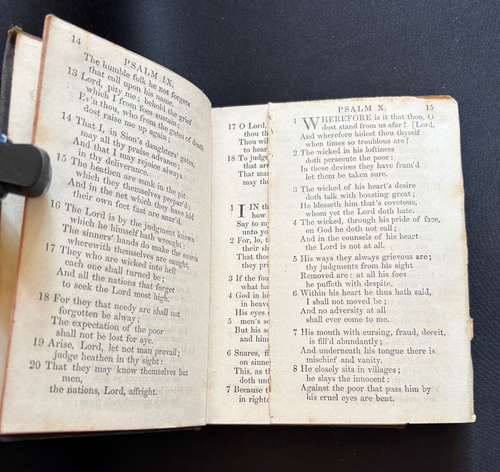 14
PSALM IX.
The humble folk he not forgets
that call upon his name.
13 Lord, pity me; behold the grief
which I from foes sustain;
Ev'n thou, who from the gates of death
dost raise me up again;
14 That I, in Sion's daughters' gates,
may all thy praise advance;
And that I may rejoice always
in thy deliverance.
15 The heathen are sunk in the pit
which they themselves prepar'd;
And in the net which they have hid
their own feet fast are snar'd.
16 The Lord is by the judgment known
which he himself hath wrought:
The sinners' hands do make the snares
wherewith themselves are caught.
17 They who are wicked into hell
each one shall turned be;
And all the nations that forget
to seek the Lord most high.
18 For they that needy are shall not
forgotten be alway;
The expectation of the poor
shall not be lost for aye.
19 Arise, Lord, let not man prevail;
judge heathen in thy sight:
20 That they may know themselves but
men,
the nations, Lord, affright.
17 O Lord,
thou th
Thou wil
to hear
18 To judg
that are
That ma
may th
1 IN th
how
Say to m
unto yo
2 For, lo, t
their sh
That tho
they pri
3 If the fou
what ha
4 God in hi
in heave
His eyes
5 men's so
But his s
and him
6 Snares, fi
on sinne
This, as th
doth un
7 Because t
in righte
PSALM X.
15
1 WHEREFORE is it that thou, O
dost stand from us afar? [Lord,
And wherefore hidest thou thyself
when times so troublous are?
2 The wicked in his loftiness
doth persecute the poor:
In these devices they have fram'd
let them be taken sure.
3 The wicked of his heart's desire
doth talk with boasting great;
He blesseth him that's covetous,
whom yet the Lord doth hate.
4 The wicked, through his pride of face,
on God he doth not call;
And in the counsels of his heart
the Lord is not at all.
5 His ways they always grievous are;
thy judgments from his sight
Removed are: at all his foes
he puffeth with despite.
6 Within his heart he thus hath said,
I shall not moved be;
And no adversity at all
shall ever come to me.
7 His mouth with cursing, fraud, deceit,
is fill'd abundantly;
And underneath his tongue there is
mischief and vanity.
8 He closely sits in villages;
he slays the innocent:
Against the poor that pass him by
his cruel eyes are bent.